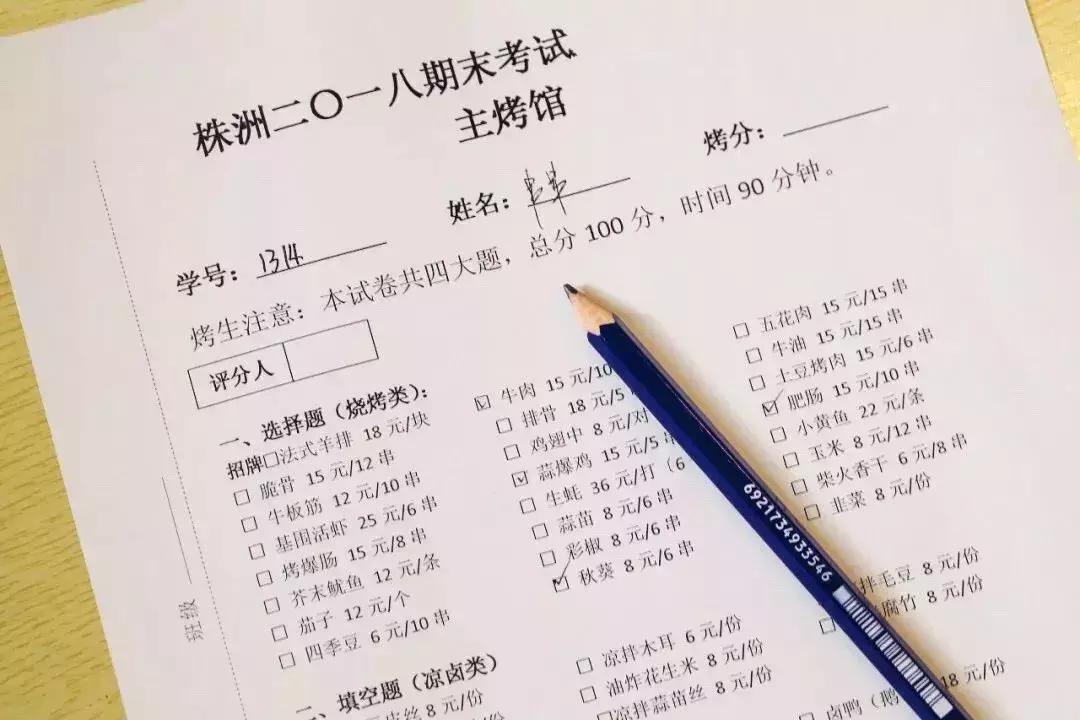 株洲二〇一八期末考试
主烤馆
学号：1314 姓名：串串 烤分：
烤生注意：本试卷共四大题，总分 100 分，时间 90 分钟。
评分人
一、选择题（烧烤类）：
招牌□法式羊排 18 元/块
□ 脆骨 15 元/12 串
□ 牛板筋 12 元/10 串
□ 基围活虾 25 元/6 串
□ 烤爆肠 15 元/8 串
□ 芥末鱿鱼 12 元/条
□ 茄子 12 元/个
□ 四季豆 6 元/10 串
☑ 牛肉 15 元/10
□ 排骨 18 元/5 串
□ 鸡翅中 8 元/对
☑ 蒜爆鸡 15 元/5 串
□ 生蚝 36 元/打（6
□ 蒜苗 8 元/6 串
□ 彩椒 8 元/6 串
☑ 秋葵 8 元/6 串
□ 五花肉 15 元/15 串
□ 牛油 15 元/15 串
□ 土豆烤肉 15 元/6 串
☑ 肥肠 15 元/10 串
□ 小黄鱼 22 元/条
□ 玉米 8 元/12 串
□ 柴火香干 6 元/8 串
□ 韭菜 8 元/份
二、填空题（凉卤类）
皮丝 8 元/份
□ 凉拌木耳 6 元/份
□ 油炸花生米 8 元/份
□凉拌蒜苗丝 8 元/份
拌毛豆 8 元/份
腐竹 8 元/份
□ 卤鸭（鹅 18 元/份
班级
6921734933546